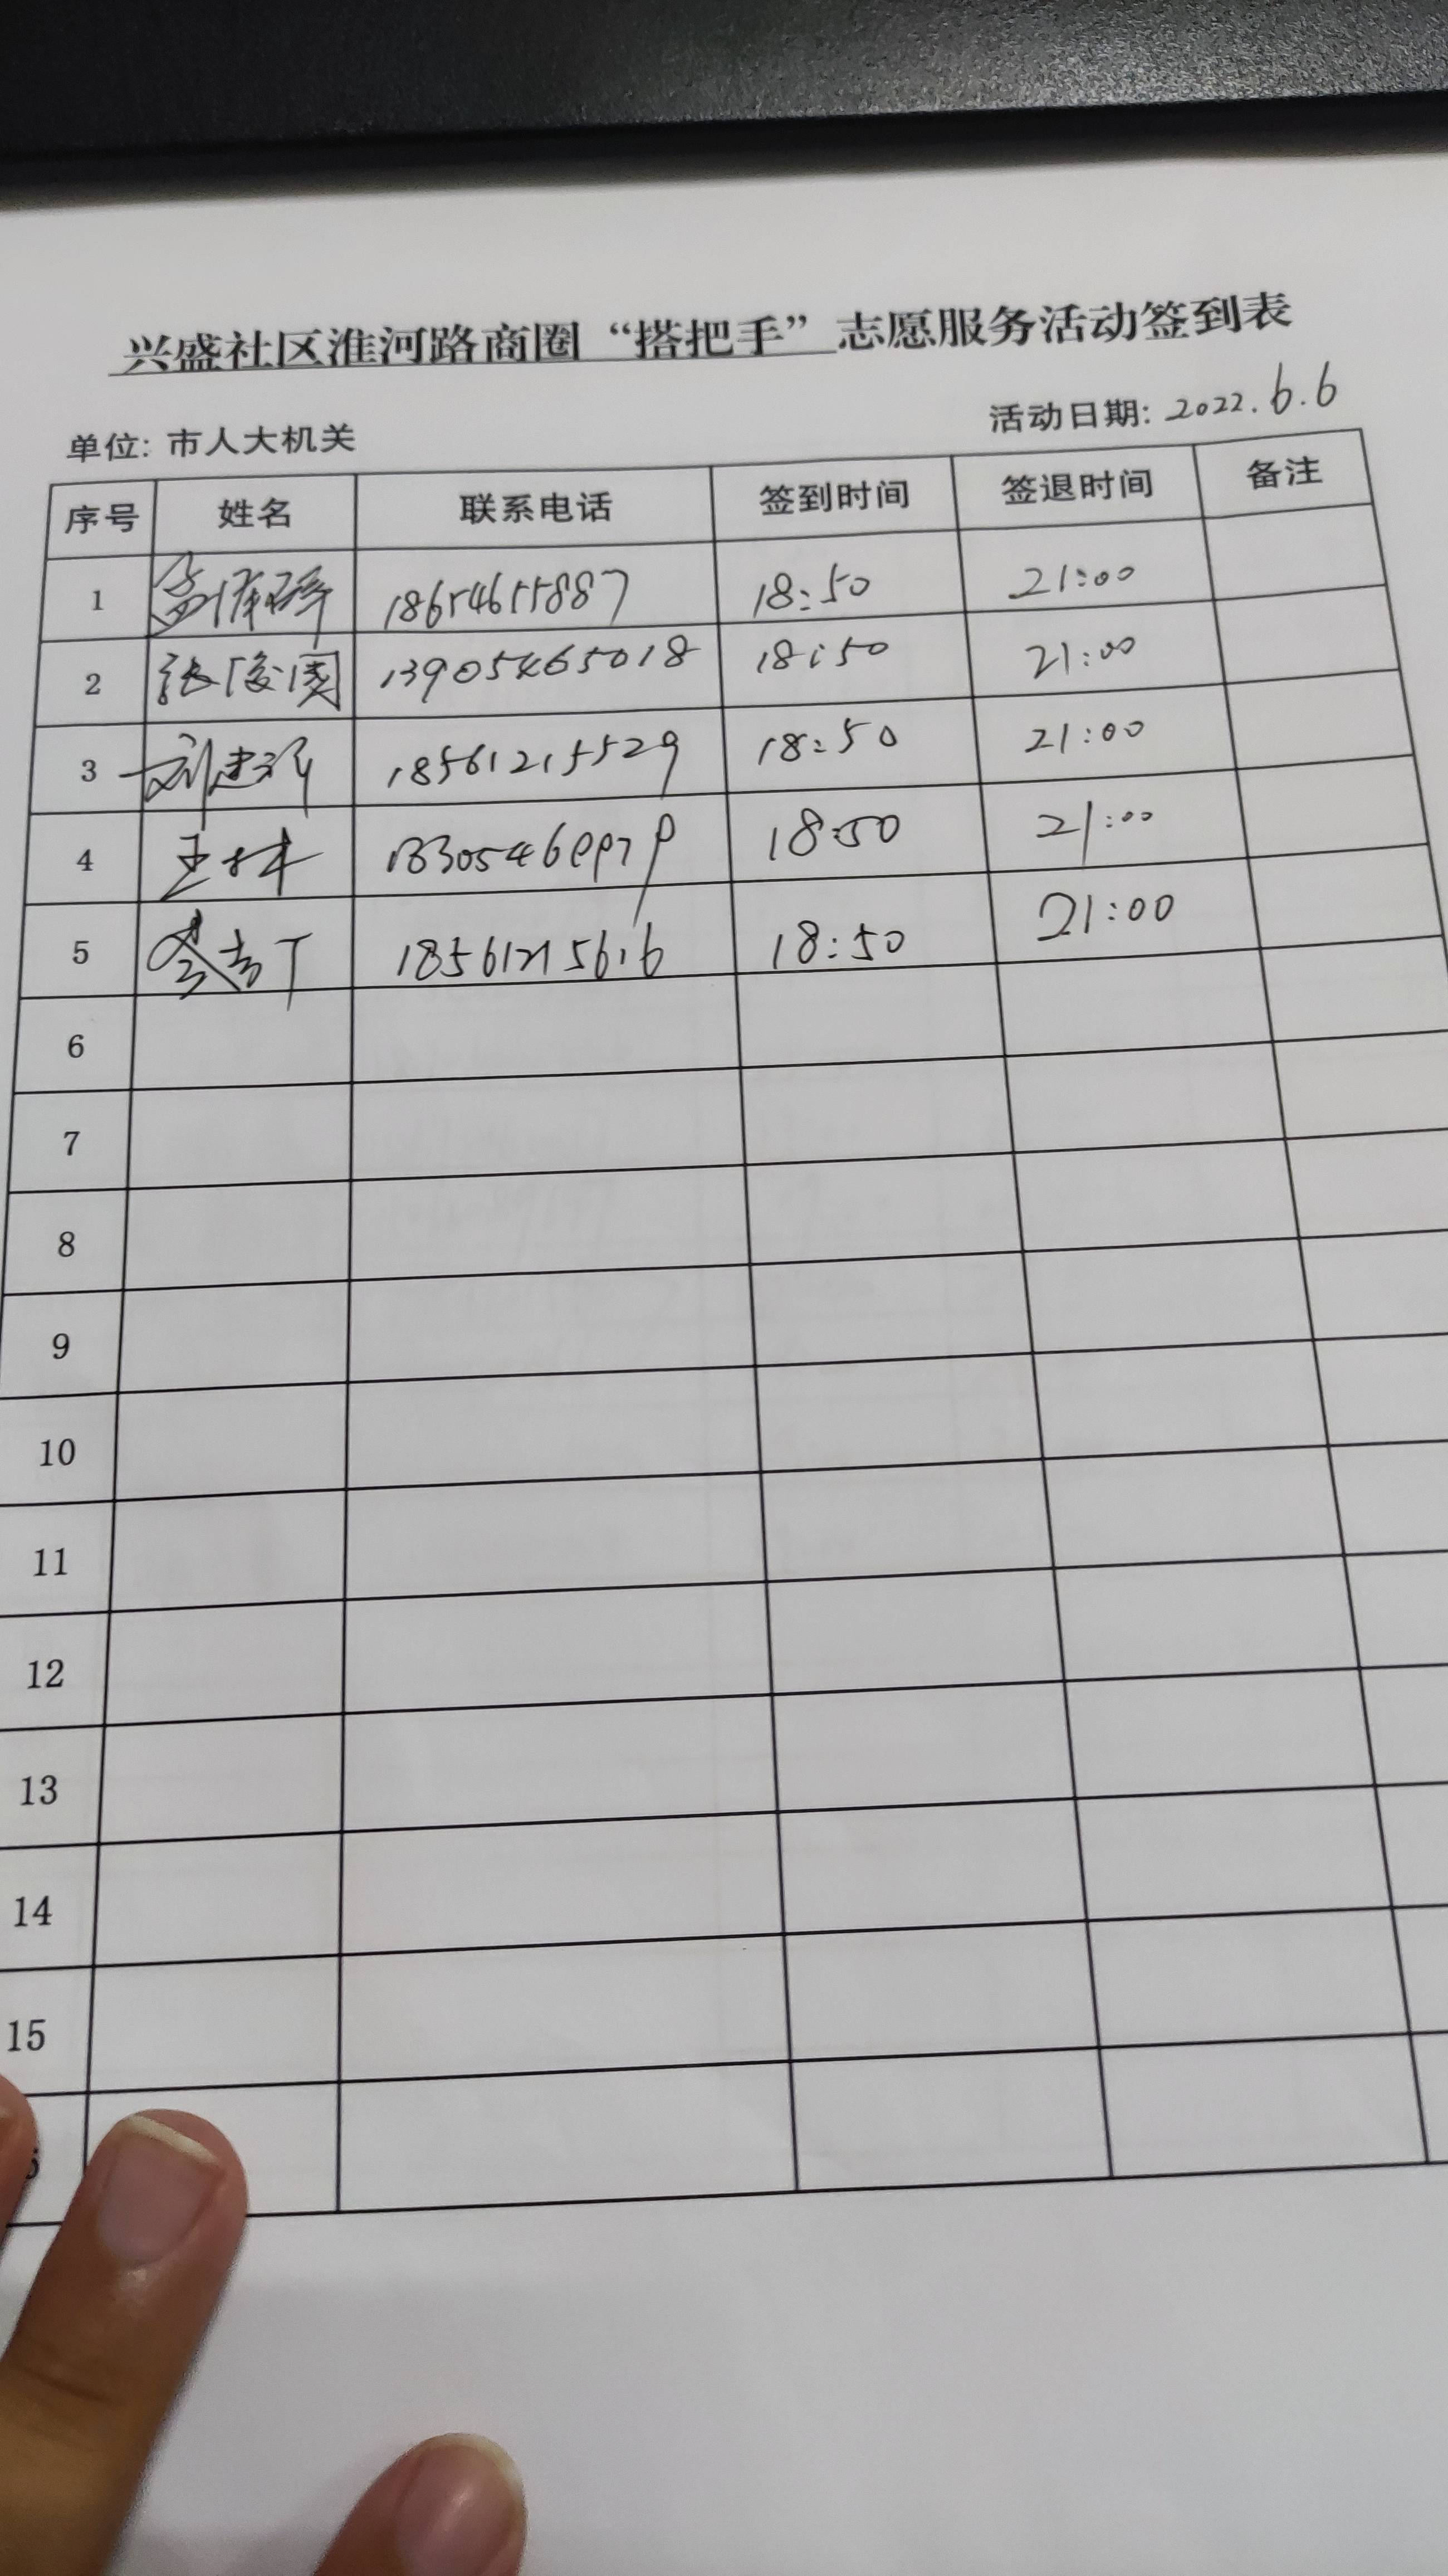 兴盛社区淮河路商圈“搭把手”志愿服务活动签到表
单位: 市人大机关 活动日期: 2022.6.6
序号 姓名 联系电话 签到时间 签退时间 备注
1 18654655887 18:50 21:00
2 张俊国 13905465018 18:50 21:00
3 18561215529 18:50 21:00
4 王林 18:50 21:00
5 18561215616 18:50 21:00
6
7
8
9
10
11
12
13
14
15